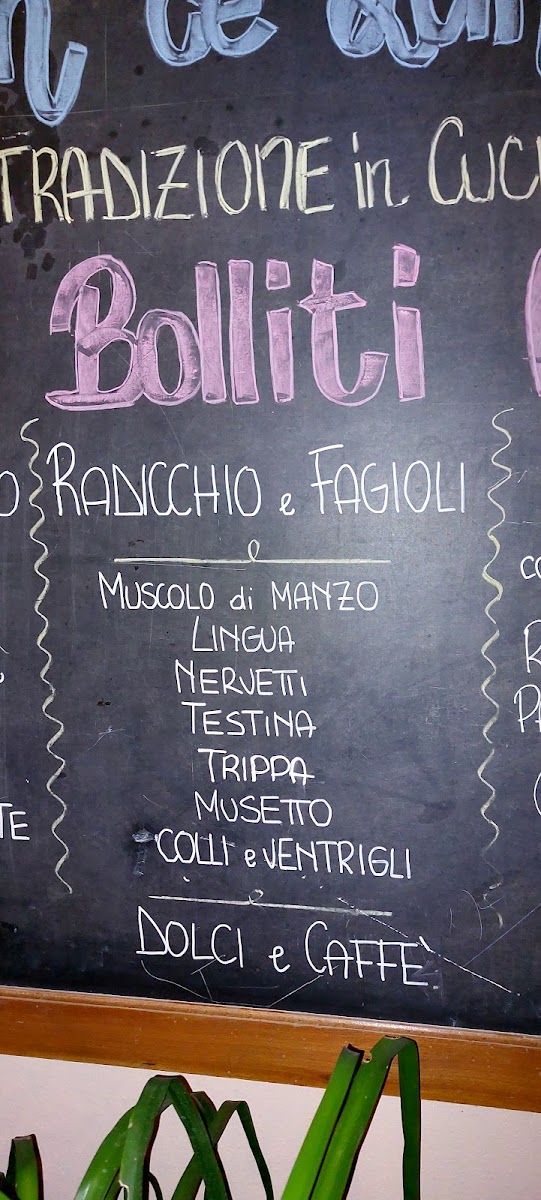 TRADIZIONE in CUCI
Bolliti
RADICCHIO e FAGIOLI
MUSCOLO di MANZO
LINGUA
NERVETTI
TESTINA
TRIPPA
MUSETTO
COLLI e VENTRIGLI
TE
DOLCI e CAFFÈ